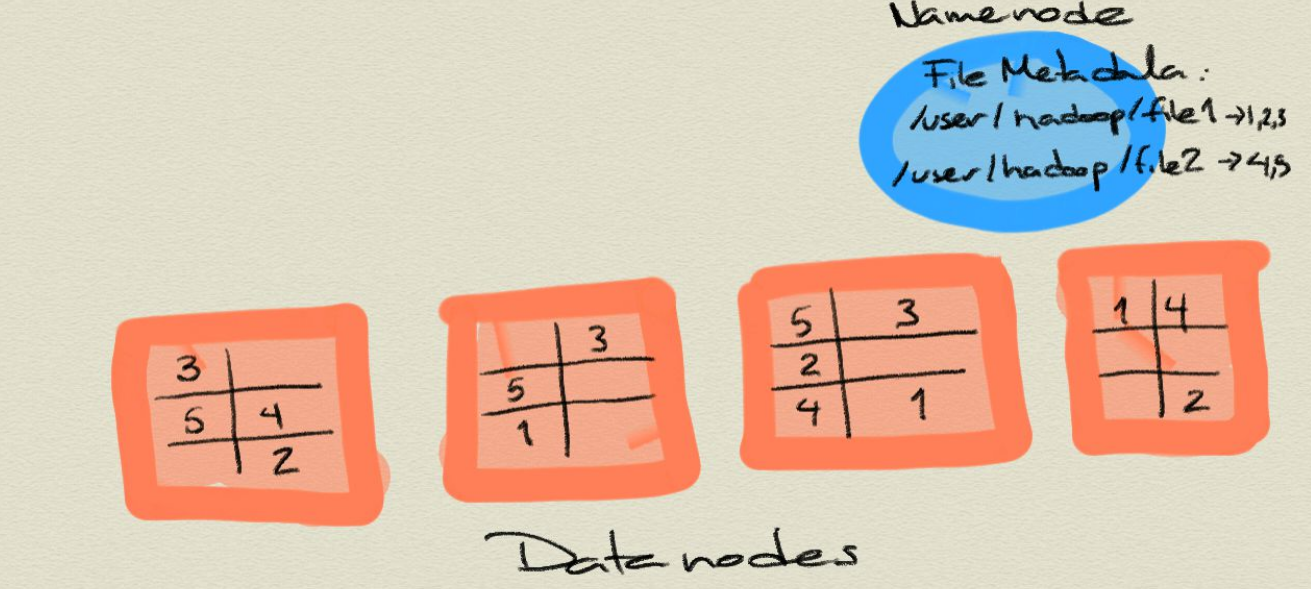 Namenode
File Metadata:
/user/hadoop/file1 →1,2,3
/user/hadoop/file2 →4,5
3
5 4
2
3
5
1
5 3
2
4 1
1 4
2
Datanodes